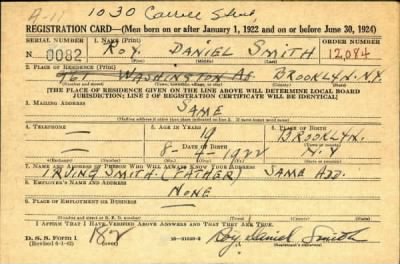 A-1 1030 Carroll Street,
REGISTRATION CARD—(Men born on or after January 1, 1922 and on or before June 30, 1924)
SERIAL NUMBER 1. NAME (Print) ORDER NUMBER
N 0082 ROY DANIEL SMITH 12,084
(First) (Middle) (Last)
2. PLACE OF RESIDENCE (Print)
961 WASHINGTON AV BROOKLYN. N.Y.
(Number and street) (Town, township, village, or city) (County) (State)
[THE PLACE OF RESIDENCE GIVEN ON THE LINE ABOVE WILL DETERMINE LOCAL BOARD
JURISDICTION; LINE 2 OF REGISTRATION CERTIFICATE WILL BE IDENTICAL]
3. MAILING ADDRESS
SAME
[Mailing address if other than place indicated on line 2. If same insert word same]
4. TELEPHONE 5. AGE IN YEARS 6. PLACE OF BIRTH
— 19 BROOKLYN.
DATE OF BIRTH
— 8-4-1922 N.Y.
(Exchange) (Number) (Mo.) (Day) (Yr.) (State or country)
7. NAME AND ADDRESS OF PERSON WHO WILL ALWAYS KNOW YOUR ADDRESS
IRVING SMITH (FATHER) SAME ADD.
8. EMPLOYER'S NAME AND ADDRESS
NONE
9. PLACE OF EMPLOYMENT OR BUSINESS
—
(Number and street or R. F. D. number) (Town) (County) (State)
I AFFIRM THAT I HAVE VERIFIED ABOVE ANSWERS AND THAT THEY ARE TRUE.
D. S. S. Form 1 182 Roy Daniel Smith
(Revised 6-1-42) (Registrant's signature)